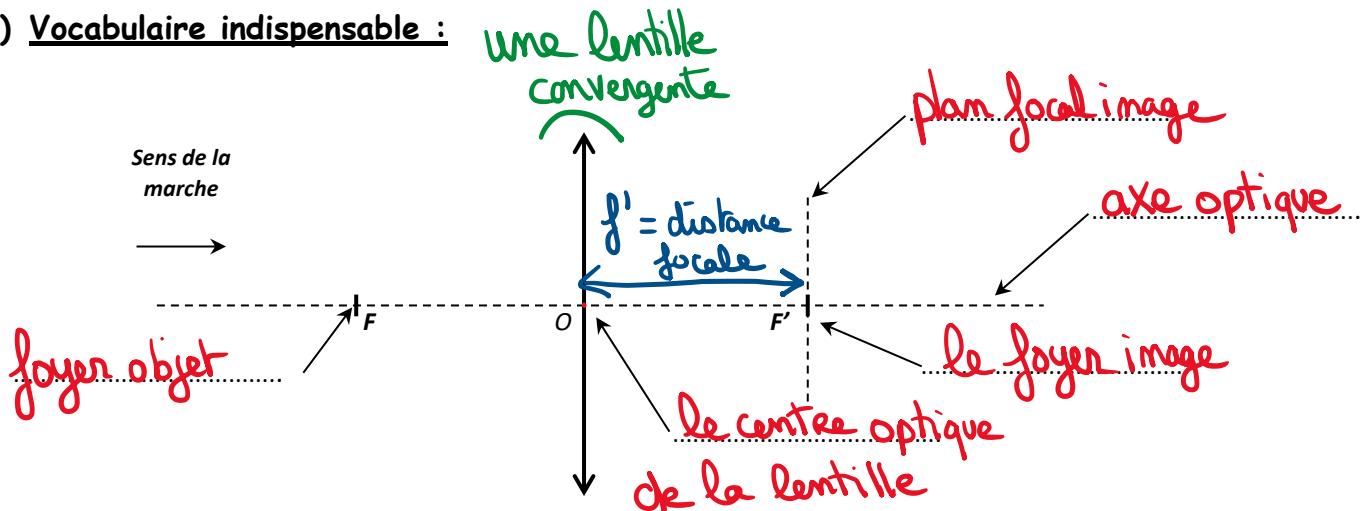 ) Vocabulaire indispensable :
une lentille
convergente
plan focal image
Sens de la
marche
axe optique
f' = distance
focale
F
O
F'
foyer objet
le foyer image
le centre optique
de la lentille